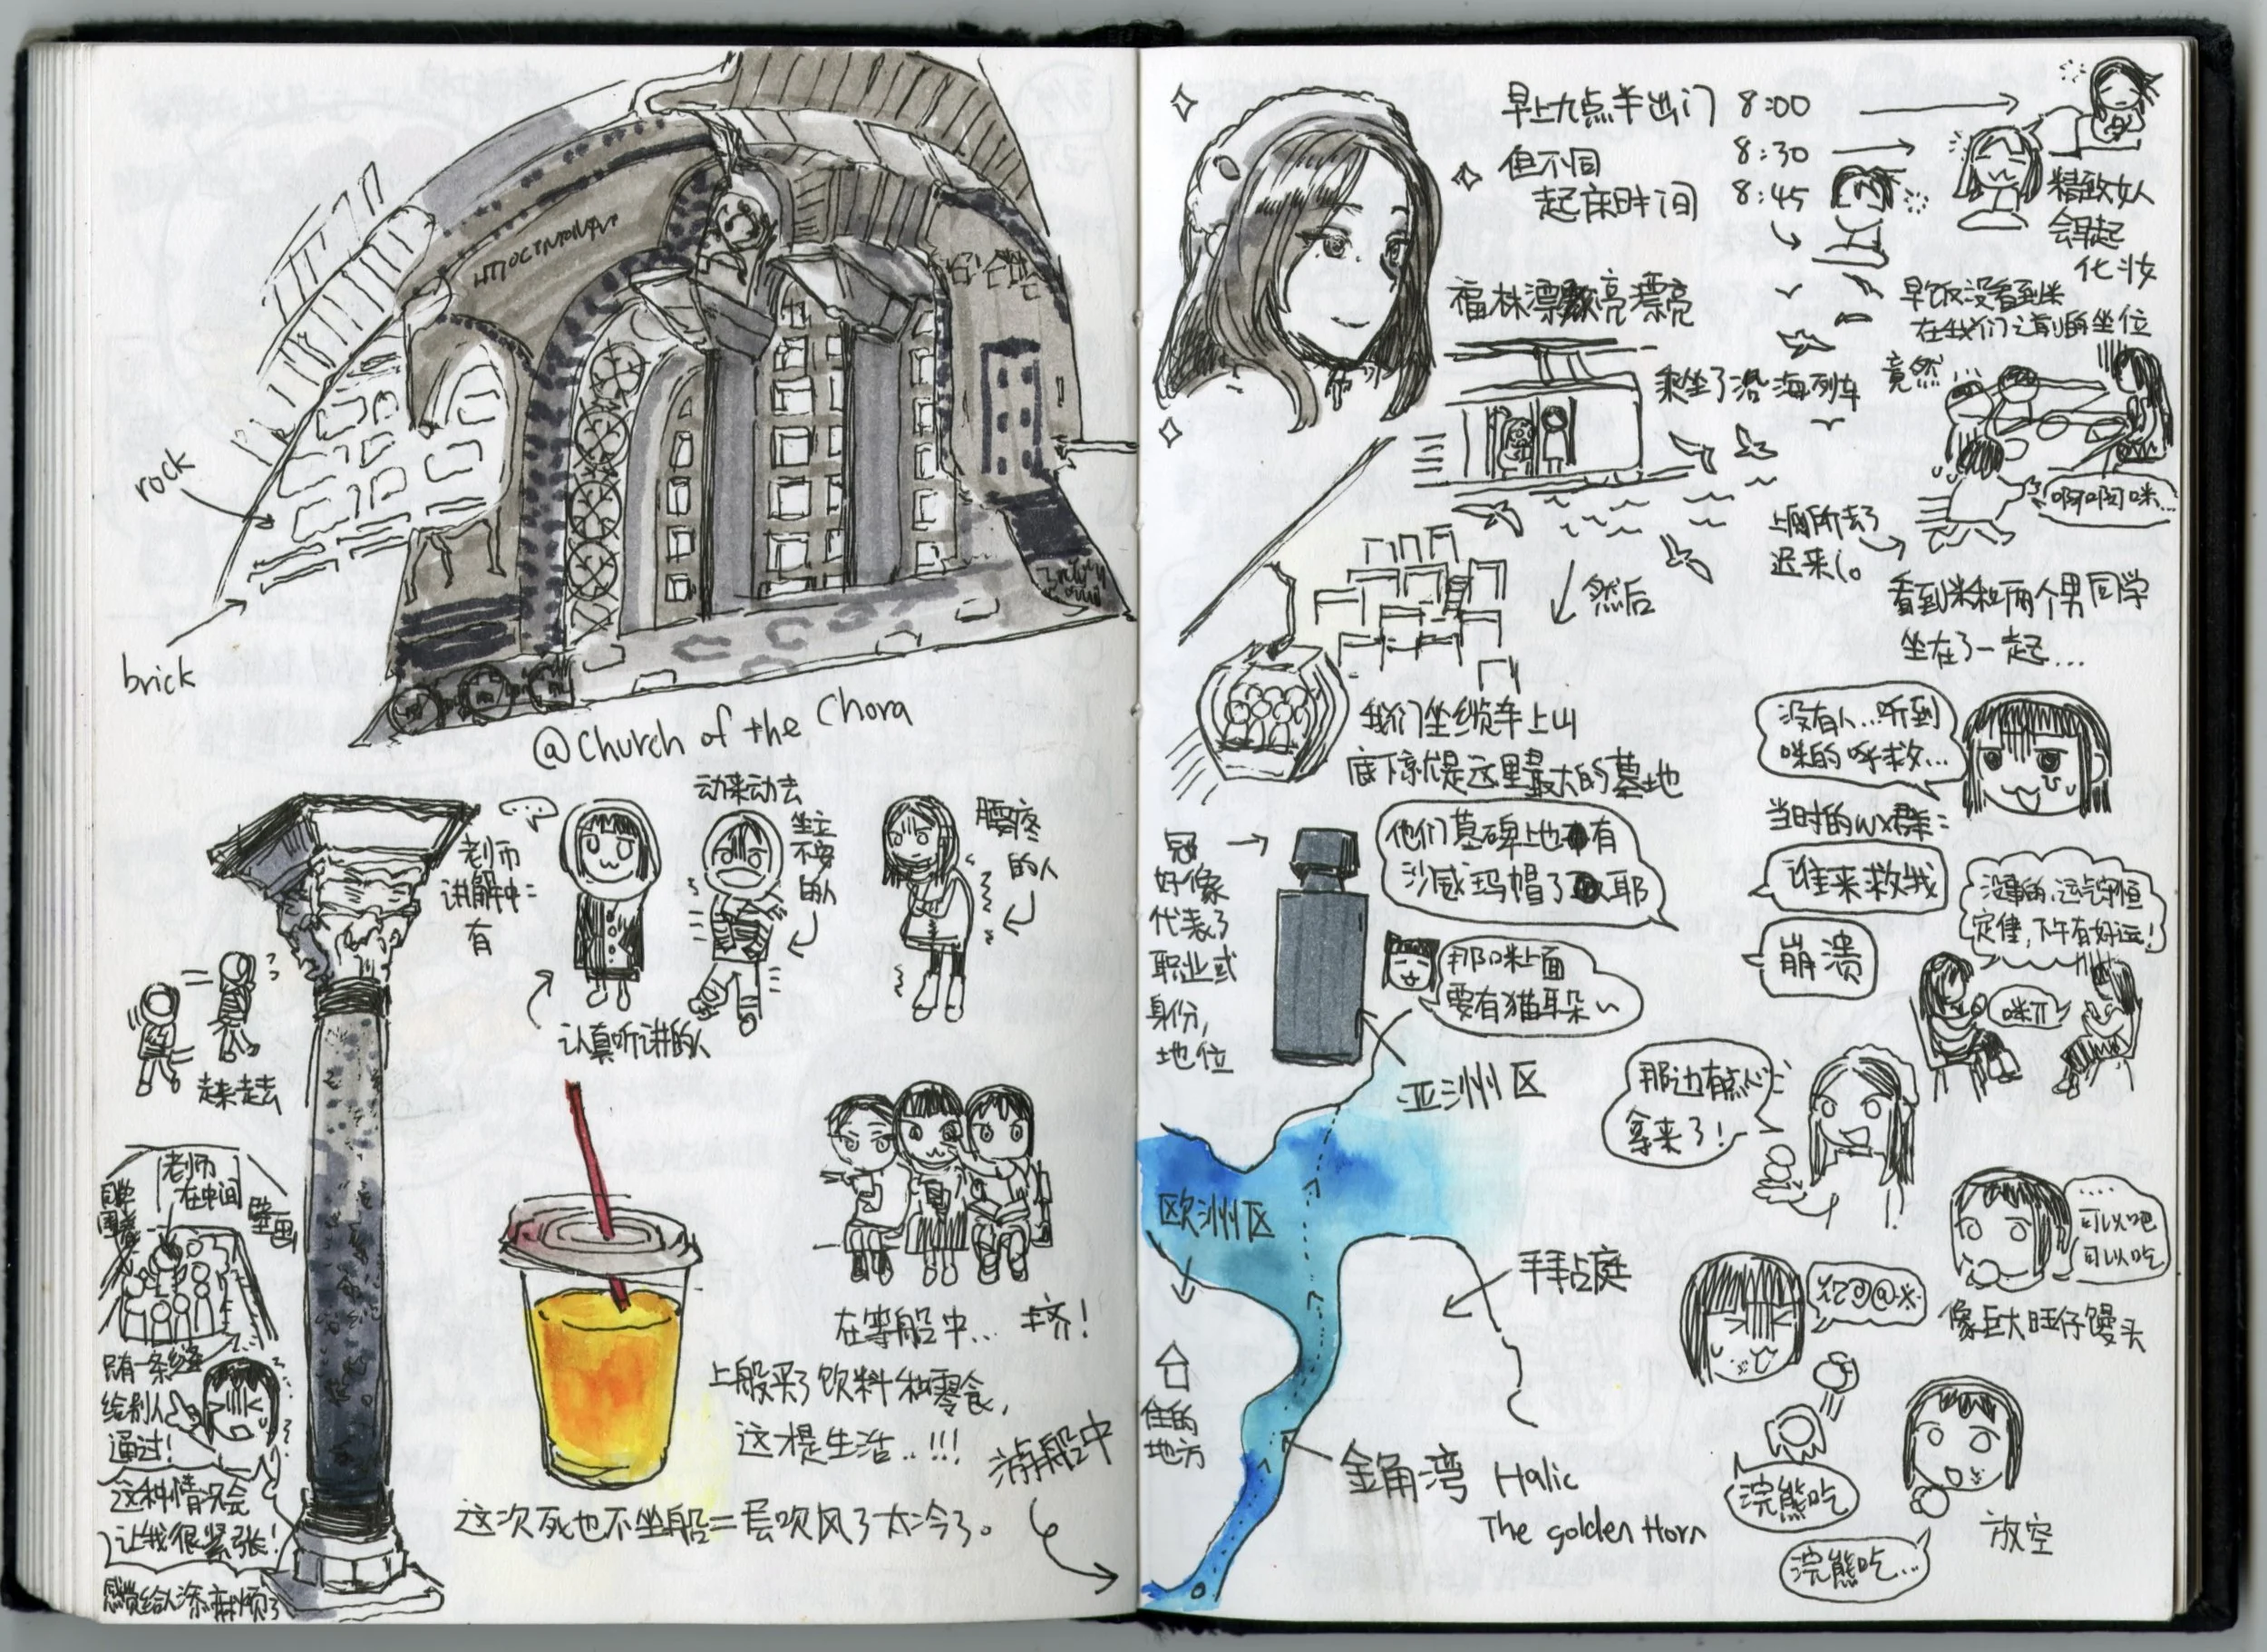 rock
brick
@Church of the Chora
老师
讲解中=
有
认真听讲的人
动来动去
坐立
不安
的人
腰疼
的人
走来走去
老师
在中间
壁画
只有一条缝
给别人
通过!
这种情况会
让我很紧张!
感觉给人添麻烦了
在等船中... 挤!
上船买了饮料和零食,
这才是生活..!!!
这次死也不坐船二层吹风了太冷了。
游船中
早上九点半出门
但不同
起床时间
8:00
8:30
8:45
精致女人
会早起
化妆
福林漂亮漂亮
乘坐了沿海列车
早饭没看到米
在我们之前的坐位
竟然...
啊啊咪...
上厕所去了
迟来了。
看到米和两个男同学
坐在了一起...
然后
我们坐缆车上山
底下就是这里最大的墓地
没有人...听到
咪的呼救...
当时的wx群:
谁来救我
崩溃
没事的,运气守恒
定律,下午有好运!
冠
好像
代表了
职业或
身份,
地位
他们墓碑上也有
沙威玛帽了耶
那咪上面
要有猫耳朵~
亚洲区
欧洲区
拜占庭
住的
地方
金角湾 Halic
The golden Horn
那边有点心
拿来了!
....
可以吧
可以吃
像巨大旺仔馒头
浣熊吃
浣熊吃...
放空